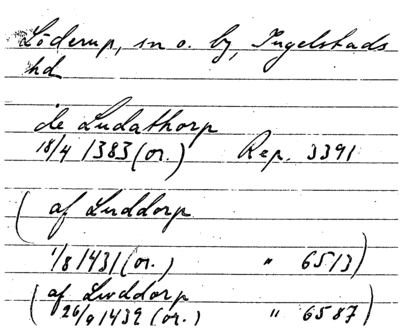 Löderup, sn o. by, Ingelstads
hd
de Ludathorp
18/4 1383 (or.) Rep. 3391
(af Luddorp
1/8 1431 (or.) " 6513)
(af Lwddorp
26/9 1432 (or.) " 6587)